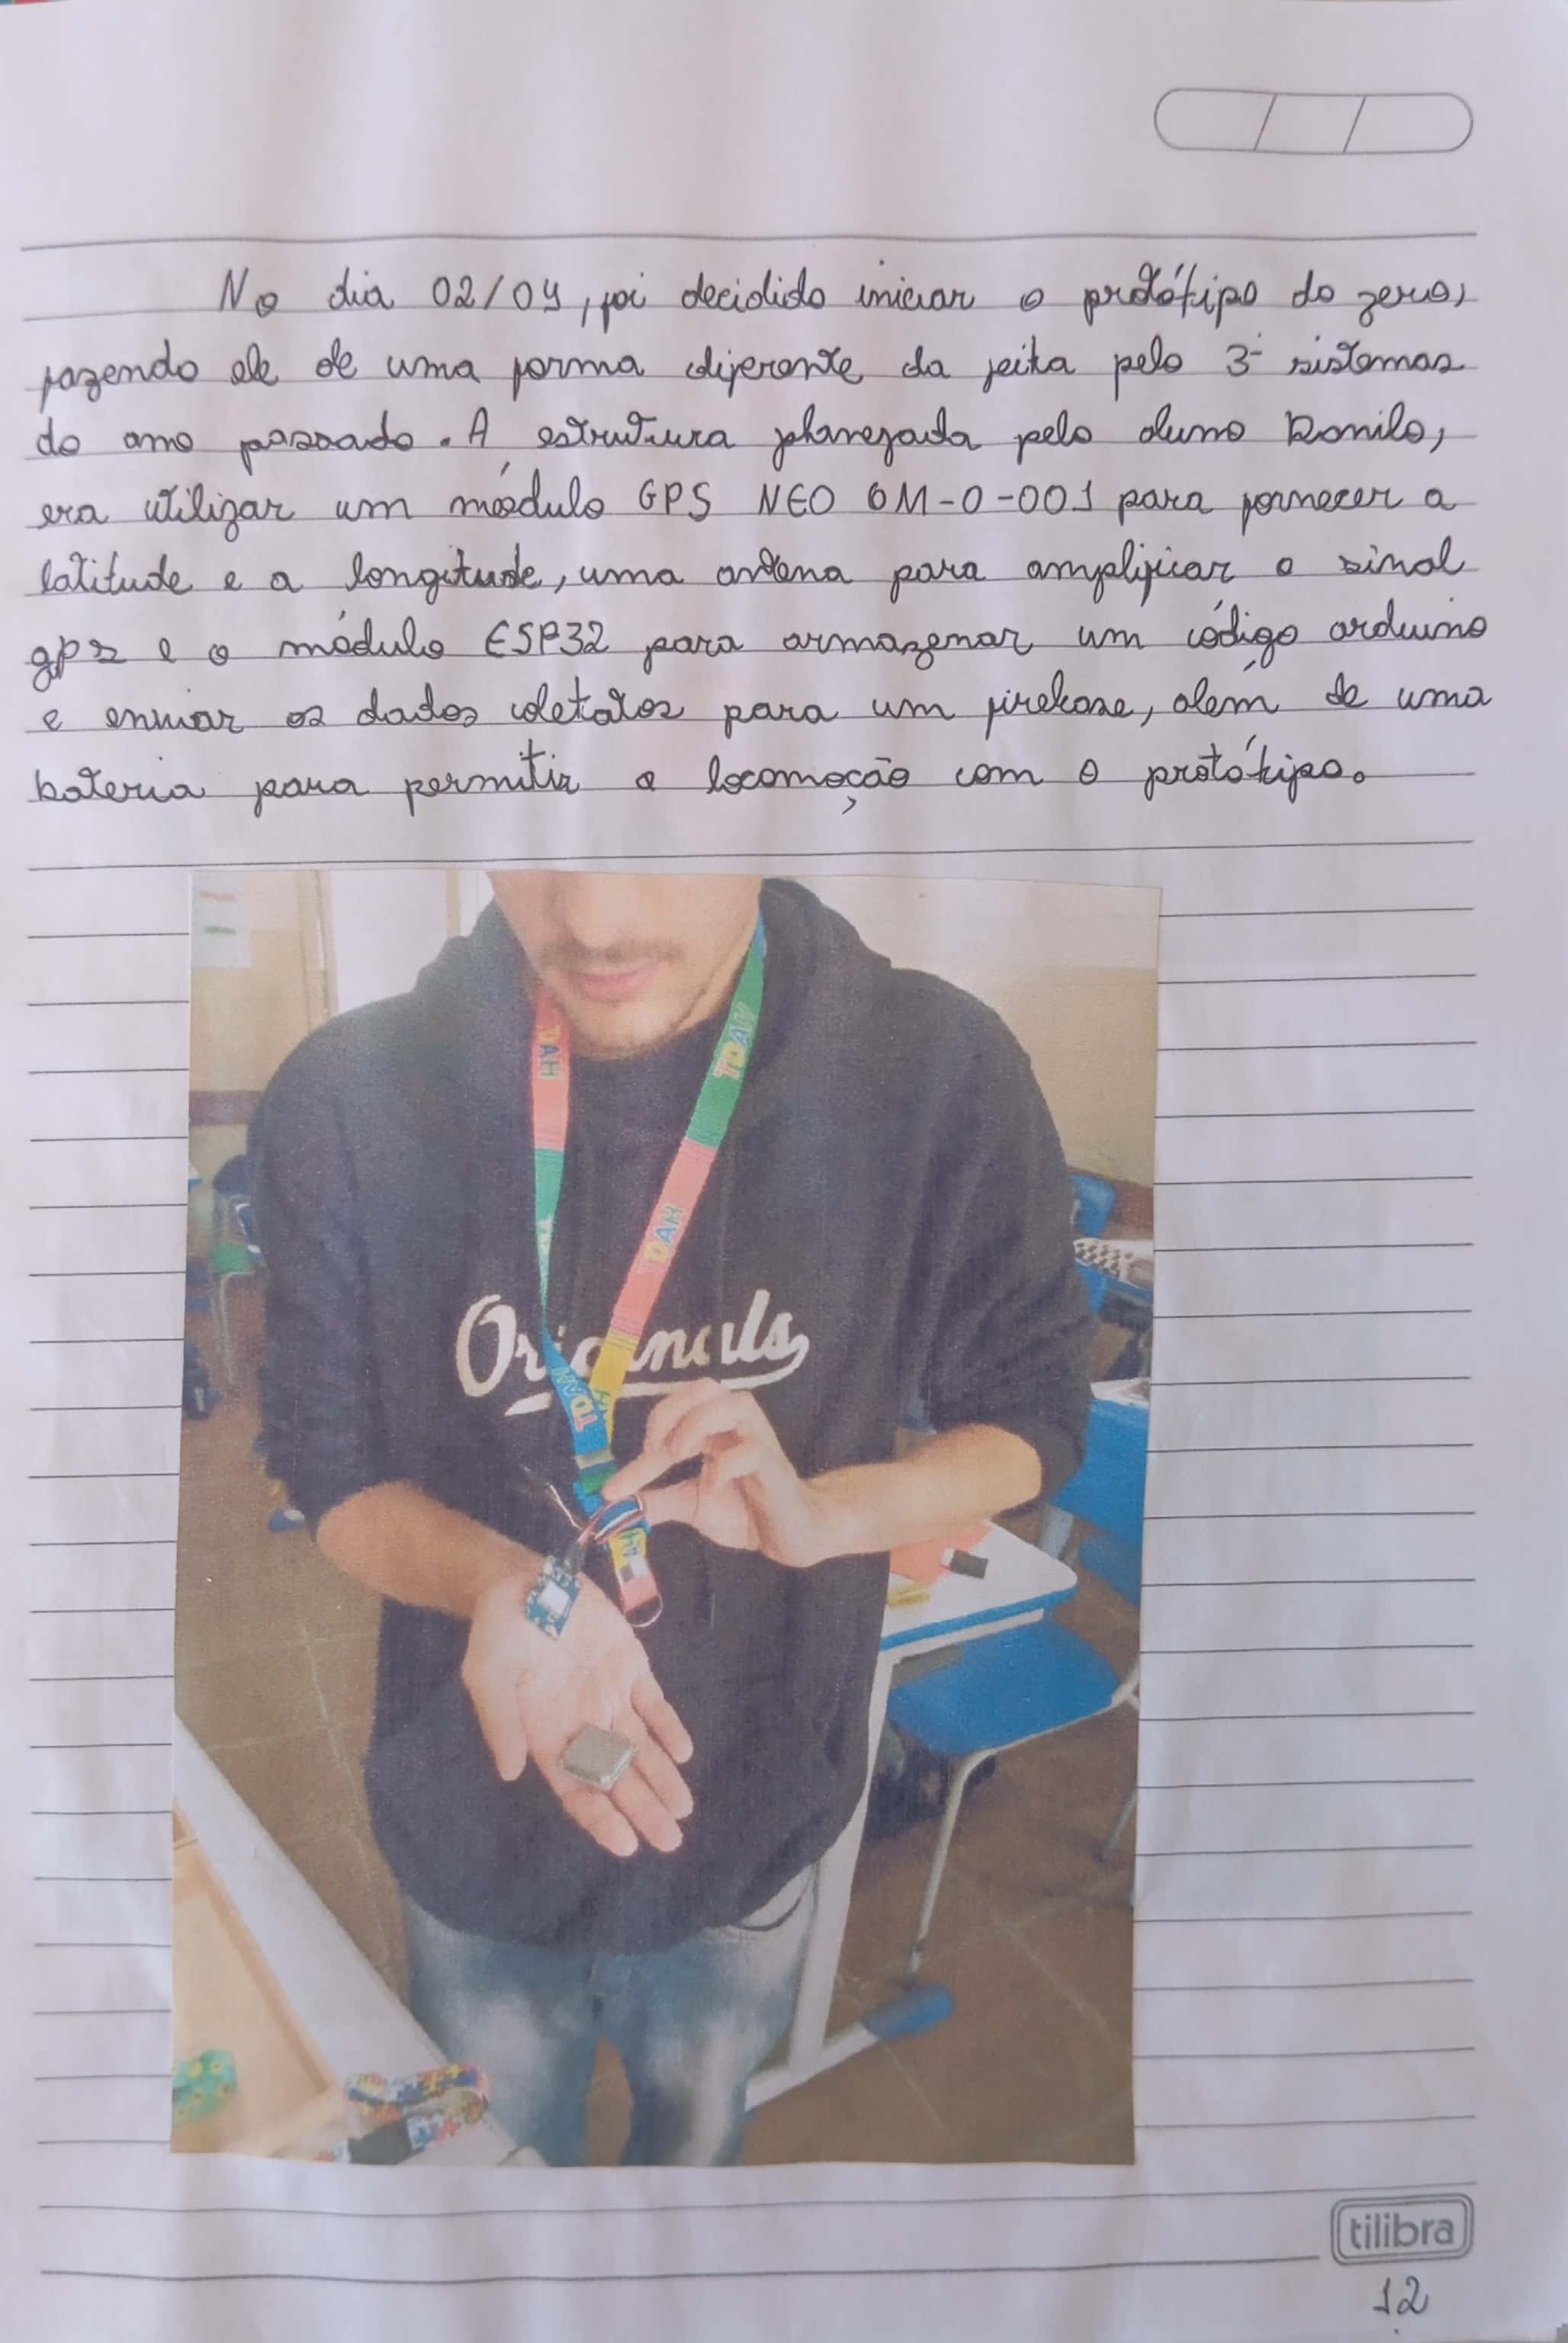 No dia 02/04, foi decidido iniciar o protótipo do zero,
fazendo ele de uma forma diferente da feita pelo 3º sistemas
do ano passado. A estrutura planejada pelo aluno Danilo,
era utilizar um módulo GPS NEO 6M-0-001 para fornecer a
latitude e a longitude, uma antena para amplificar o sinal
gps e o módulo ESP32 para armazenar um código arduino
e enviar os dados coletados para um firebase, além de uma
bateria para permitir a locomoção com o protótipo.
TDAH
TDAH
TDAH
Originals
TDAH
tilibra
12